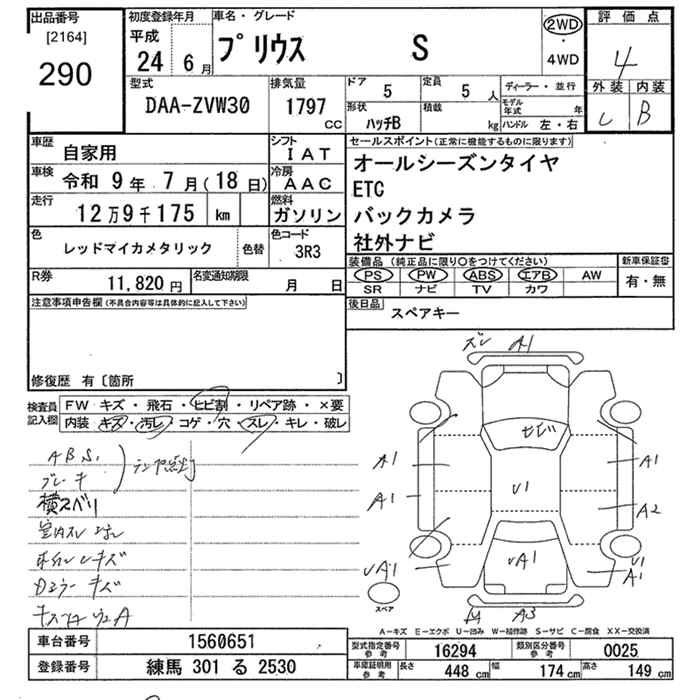 出品番号
[2164]
290
初度登録年月
平成
24 6月
車名・グレード
プリウス S
2WD
・
4WD
評価点
4
外装 内装
C B
型式
DAA-ZVW30
排気量
1797
CC
ドア
5
定員
5 人
形状
ハッチB
積載
kg
ディーラー・並行
モデル年式 年
ハンドル 左・右
車歴
自家用
シフト
IAT
車検
令和 9年 7月(18日)
冷房
AAC
走行
12万9千175 km
燃料
ガソリン
色
レッドマイカメタリック
色替
色コード
3R3
R券
11,820 円
名変通知期限
月 日
セールスポイント(正常に機能するものに限ります)
オールシーズンタイヤ
ETC
バックカメラ
社外ナビ
装備品(純正品に限り○をつけてください)
PS PW ABS エアB AW
SR ナビ TV カワ
新車保証書
有・無
後日品
スペアキー
注意事項申告欄(不具合内容等は具体的に記入して下さい)
修復歴 有〔箇所 〕
検査員記入欄
FW キズ・飛石・ヒビ割・リペア跡・×要
内装 キズ・汚レ・コゲ・穴・スレ・キレ・破レ
ABS.
ブレーキ
ランプ点灯
横スベリ
キズ
キズ
ズレ A1
ヒビ
A1
A1
U1
A1
A2
UA1
UA1
U1
A1
A3
スペア
A-キズ E-エクボ U-凹み W-補修跡 S-サビ C-腐食 XX-交換済
車台番号
1560651
登録番号
練馬 301 る 2530
型式指定番号
参考
16294
類別区分番号
参考
0025
車庫証明用
参考
長さ 448 cm 幅 174 cm 高さ 149 cm